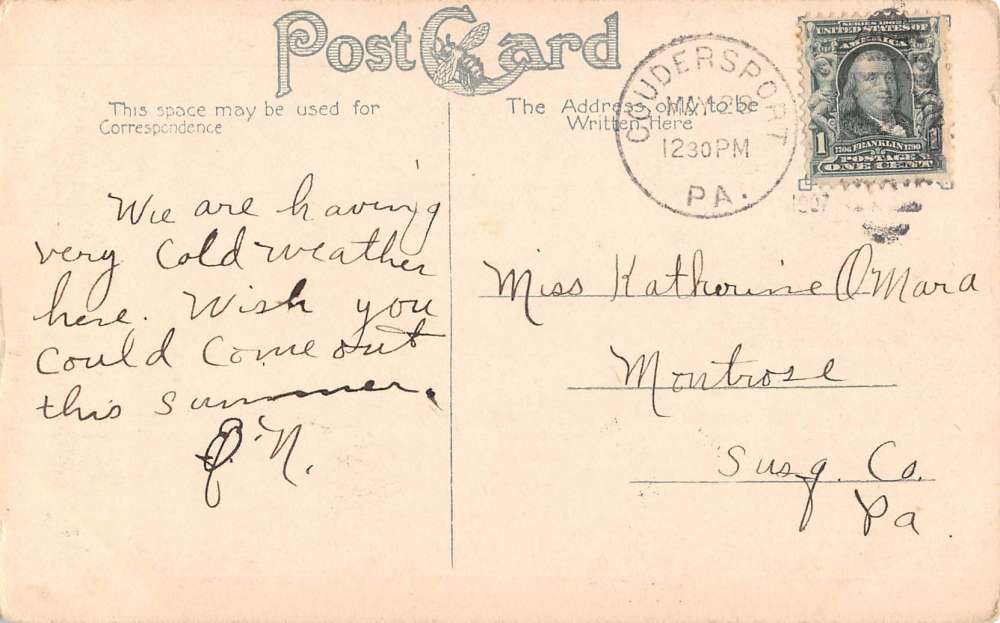 Post Card
This space may be used for
Correspondence
The Address only to be
Written Here
COUDERSPORT
MAY 28
12 30 PM
PA.
1907
SERIES 1902
UNITED STATES OF
AMERICA
1706 FRANKLIN 1790
POSTAGE
1 ONE CENT
We are having
very Cold weather
here. Wish you
Could Come out
this summer.
N.
Miss Katherine O Mara
Montrose
Susq. Co.
Pa